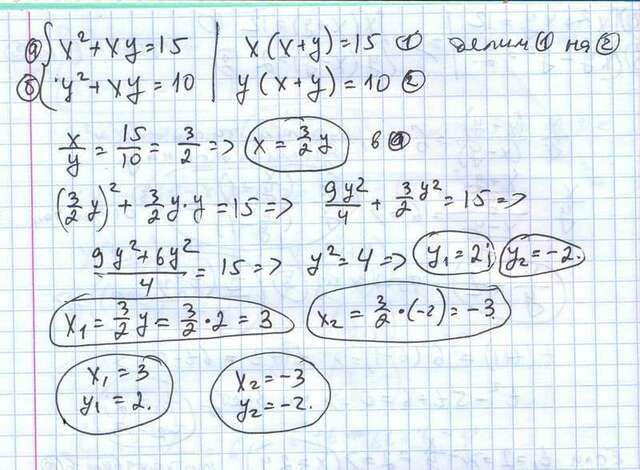 а) { x² + xy = 15 | x(x+y) = 15 ① делим ① на ②
б) { y² + xy = 10 | y(x+y) = 10 ②
x/y = 15/10 = 3/2 => x = 3/2 y в а
(3/2 y)² + 3/2 y·y = 15 => 9y²/4 + 3/2 y² = 15 =>
9y²+6y²/4 = 15 => y² = 4 => y₁ = 2; y₂ = -2.
x₁ = 3/2 y = 3/2 · 2 = 3 x₂ = 3/2 · (-2) = -3
x₁ = 3 x₂ = -3
y₁ = 2. y₂ = -2.